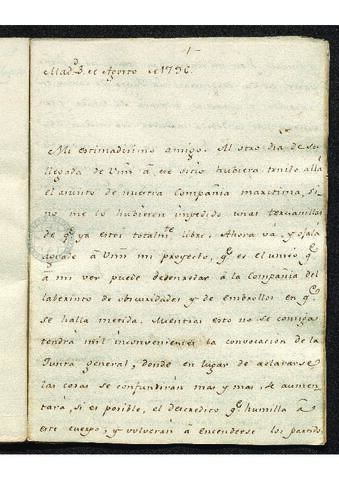 1
Mad.d 3 de Agosto de 1796.
Mi estimadísimo amigo. Al otro día de su
llegada de Vm à ese sitio hubiera tenido allá
el asunto de nuestra Compañia maritima, si
no me lo hubiesen impedido unas tercianillas
de q.e ya estoi totalm.te libre. Ahora vá, y ojala
agrade à Vmm mi proyecto, q.e es el unico q.e
à mi ver puede desenredar à la Compañia del
laberinto de obscuridades y de embrollos en q.e
se halla metida. Mientras esto no se consiga
tendrà mil inconvenientes la convocacion de la
Junta general, donde en lugar de aclararse
las cosas se confundirán mas y mas, se aumen
tarà, si es posible, el descredito q.e humilla à
este cuerpo, y volverán à encenderse los partido